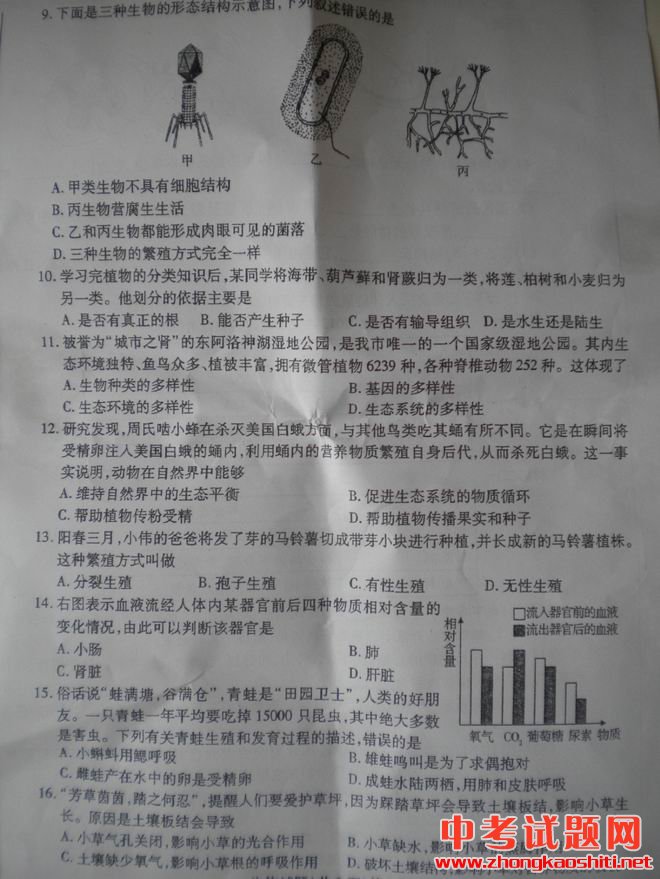 9. 下面是三种生物的形态结构示意图,下列叙述错误的是
甲
乙
丙
A. 甲类生物不具有细胞结构
B. 丙生物营腐生生活
C. 乙和丙生物都能形成肉眼可见的菌落
D. 三种生物的繁殖方式完全一样
10. 学习完植物的分类知识后,某同学将海带、葫芦藓和肾蕨归为一类,将莲、柏树和小麦归为
另一类。他划分的依据主要是
A. 是否有真正的根 B. 能否产生种子 C. 是否有输导组织 D. 是水生还是陆生
11. 被誉为“城市之肾”的东阿洛神湖湿地公园,是我市唯一的一个国家级湿地公园。其内生
态环境独特、鱼鸟众多、植被丰富,拥有微管植物 6239 种,各种脊椎动物 252 种。这体现了
A. 生物种类的多样性 B. 基因的多样性
C. 生态环境的多样性 D. 生态系统的多样性
12. 研究发现,周氏啮小蜂在杀灭美国白蛾方面,与其他鸟类吃其蛹有所不同。它是在瞬间将
受精卵注入美国白蛾的蛹内,利用蛹内的营养物质繁殖自身后代,从而杀死白蛾。这一事
实说明,动物在自然界中能够
A. 维持自然界中的生态平衡 B. 促进生态系统的物质循环
C. 帮助植物传粉受精 D. 帮助植物传播果实和种子
13. 阳春三月,小伟的爸爸将发了芽的马铃薯切成带芽小块进行种植,并长成新的马铃薯植株。
这种繁殖方式叫做
A. 分裂生殖 B. 孢子生殖 C. 有性生殖 D. 无性生殖
14. 右图表示血液流经人体内某器官前后四种物质相对含量的
变化情况,由此可以判断该器官是
A. 小肠 B. 肺
C. 肾脏 D. 肝脏
相对含量
流入器官前的血液
流出器官后的血液
氧气 CO2 葡萄糖 尿素 物质
15. 俗话说“蛙满塘,谷满仓”,青蛙是“田园卫士”,人类的好朋
友。一只青蛙一年平均要吃掉 15000 只昆虫,其中绝大多数
是害虫。下列有关青蛙生殖和发育过程的描述,错误的是
A. 小蝌蚪用鳃呼吸 B. 雄蛙鸣叫是为了求偶抱对
C. 雌蛙产在水中的卵是受精卵 D. 成蛙水陆两栖,用肺和皮肤呼吸
16. “芳草茵茵,踏之何忍”,提醒人们要爱护草坪,因为踩踏草坪会导致土壤板结,影响小草生
长。原因是土壤板结会导致
A. 小草气孔关闭,影响小草的光合作用 B. 小草缺水,影响小草的蒸腾作用
C. 土壤缺少氧气,影响小草根的呼吸作用 D. 破坏土壤结构,影响小草对
中考试题网
www.zhongkaoshiti.net